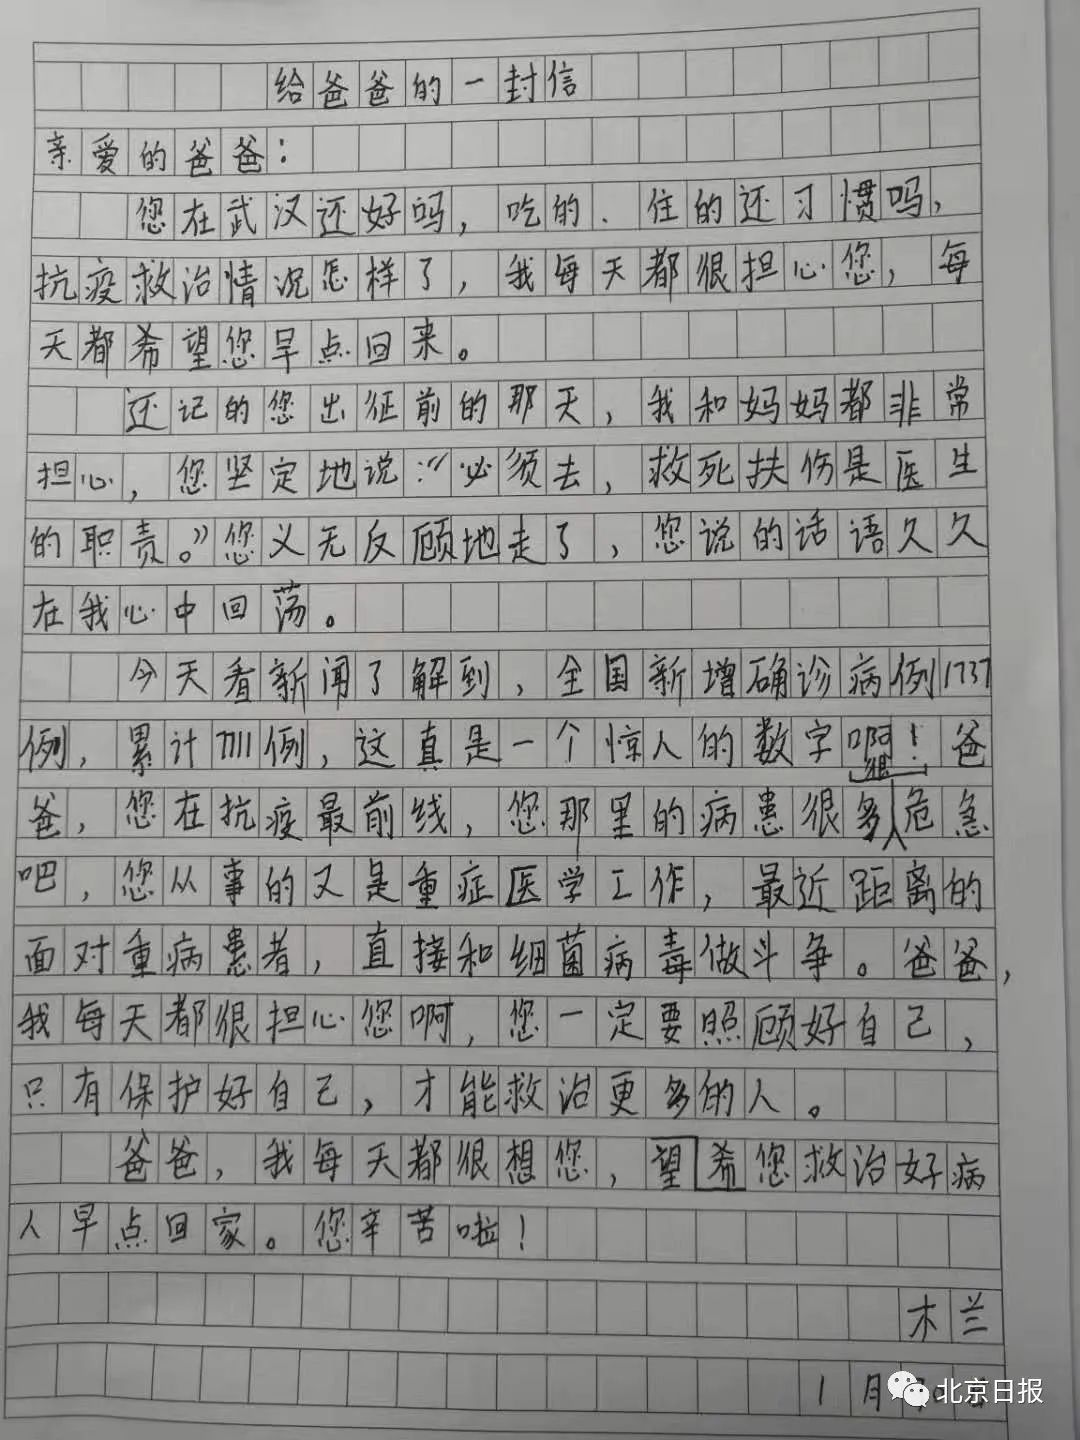 给爸爸的一封信
亲爱的爸爸:
您在武汉还好吗,吃的、住的还习惯吗,
抗疫救治情况怎样了,我每天都很担心您,每
天都希望您早点回来。
还记的您出征前的那天,我和妈妈都非常
担心,您坚定地说:“必须去,救死扶伤是医生
的职责。”您义无反顾地走了,您说的话语久久
在我心中回荡。
今天看新闻了解到,全国新增确诊病例1737
例,累计7711例,这真是一个惊人的数字啊!爸
爸,您在抗疫最前线,您那里的病患很多人危急
吧,您从事的又是重症医学工作,最近距离的
面对重病患者,直接和细菌病毒做斗争。爸爸,
我每天都很担心您啊,您一定要照顾好自己,
只有保护好自己,才能救治更多的人。
爸爸,我每天都很想您,望希您救治好病
人早点回家。您辛苦啦!
木兰
1月
北京日报